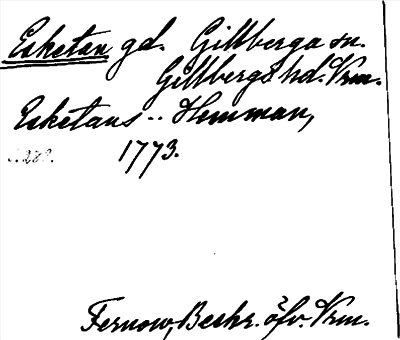 Esketan gd. Gillberga sn.
Gillbergs hd. Vrm.
Esketans -- Hemman,
1773.
s. 289.
Fernow, Beskr. öfv. Vrm.